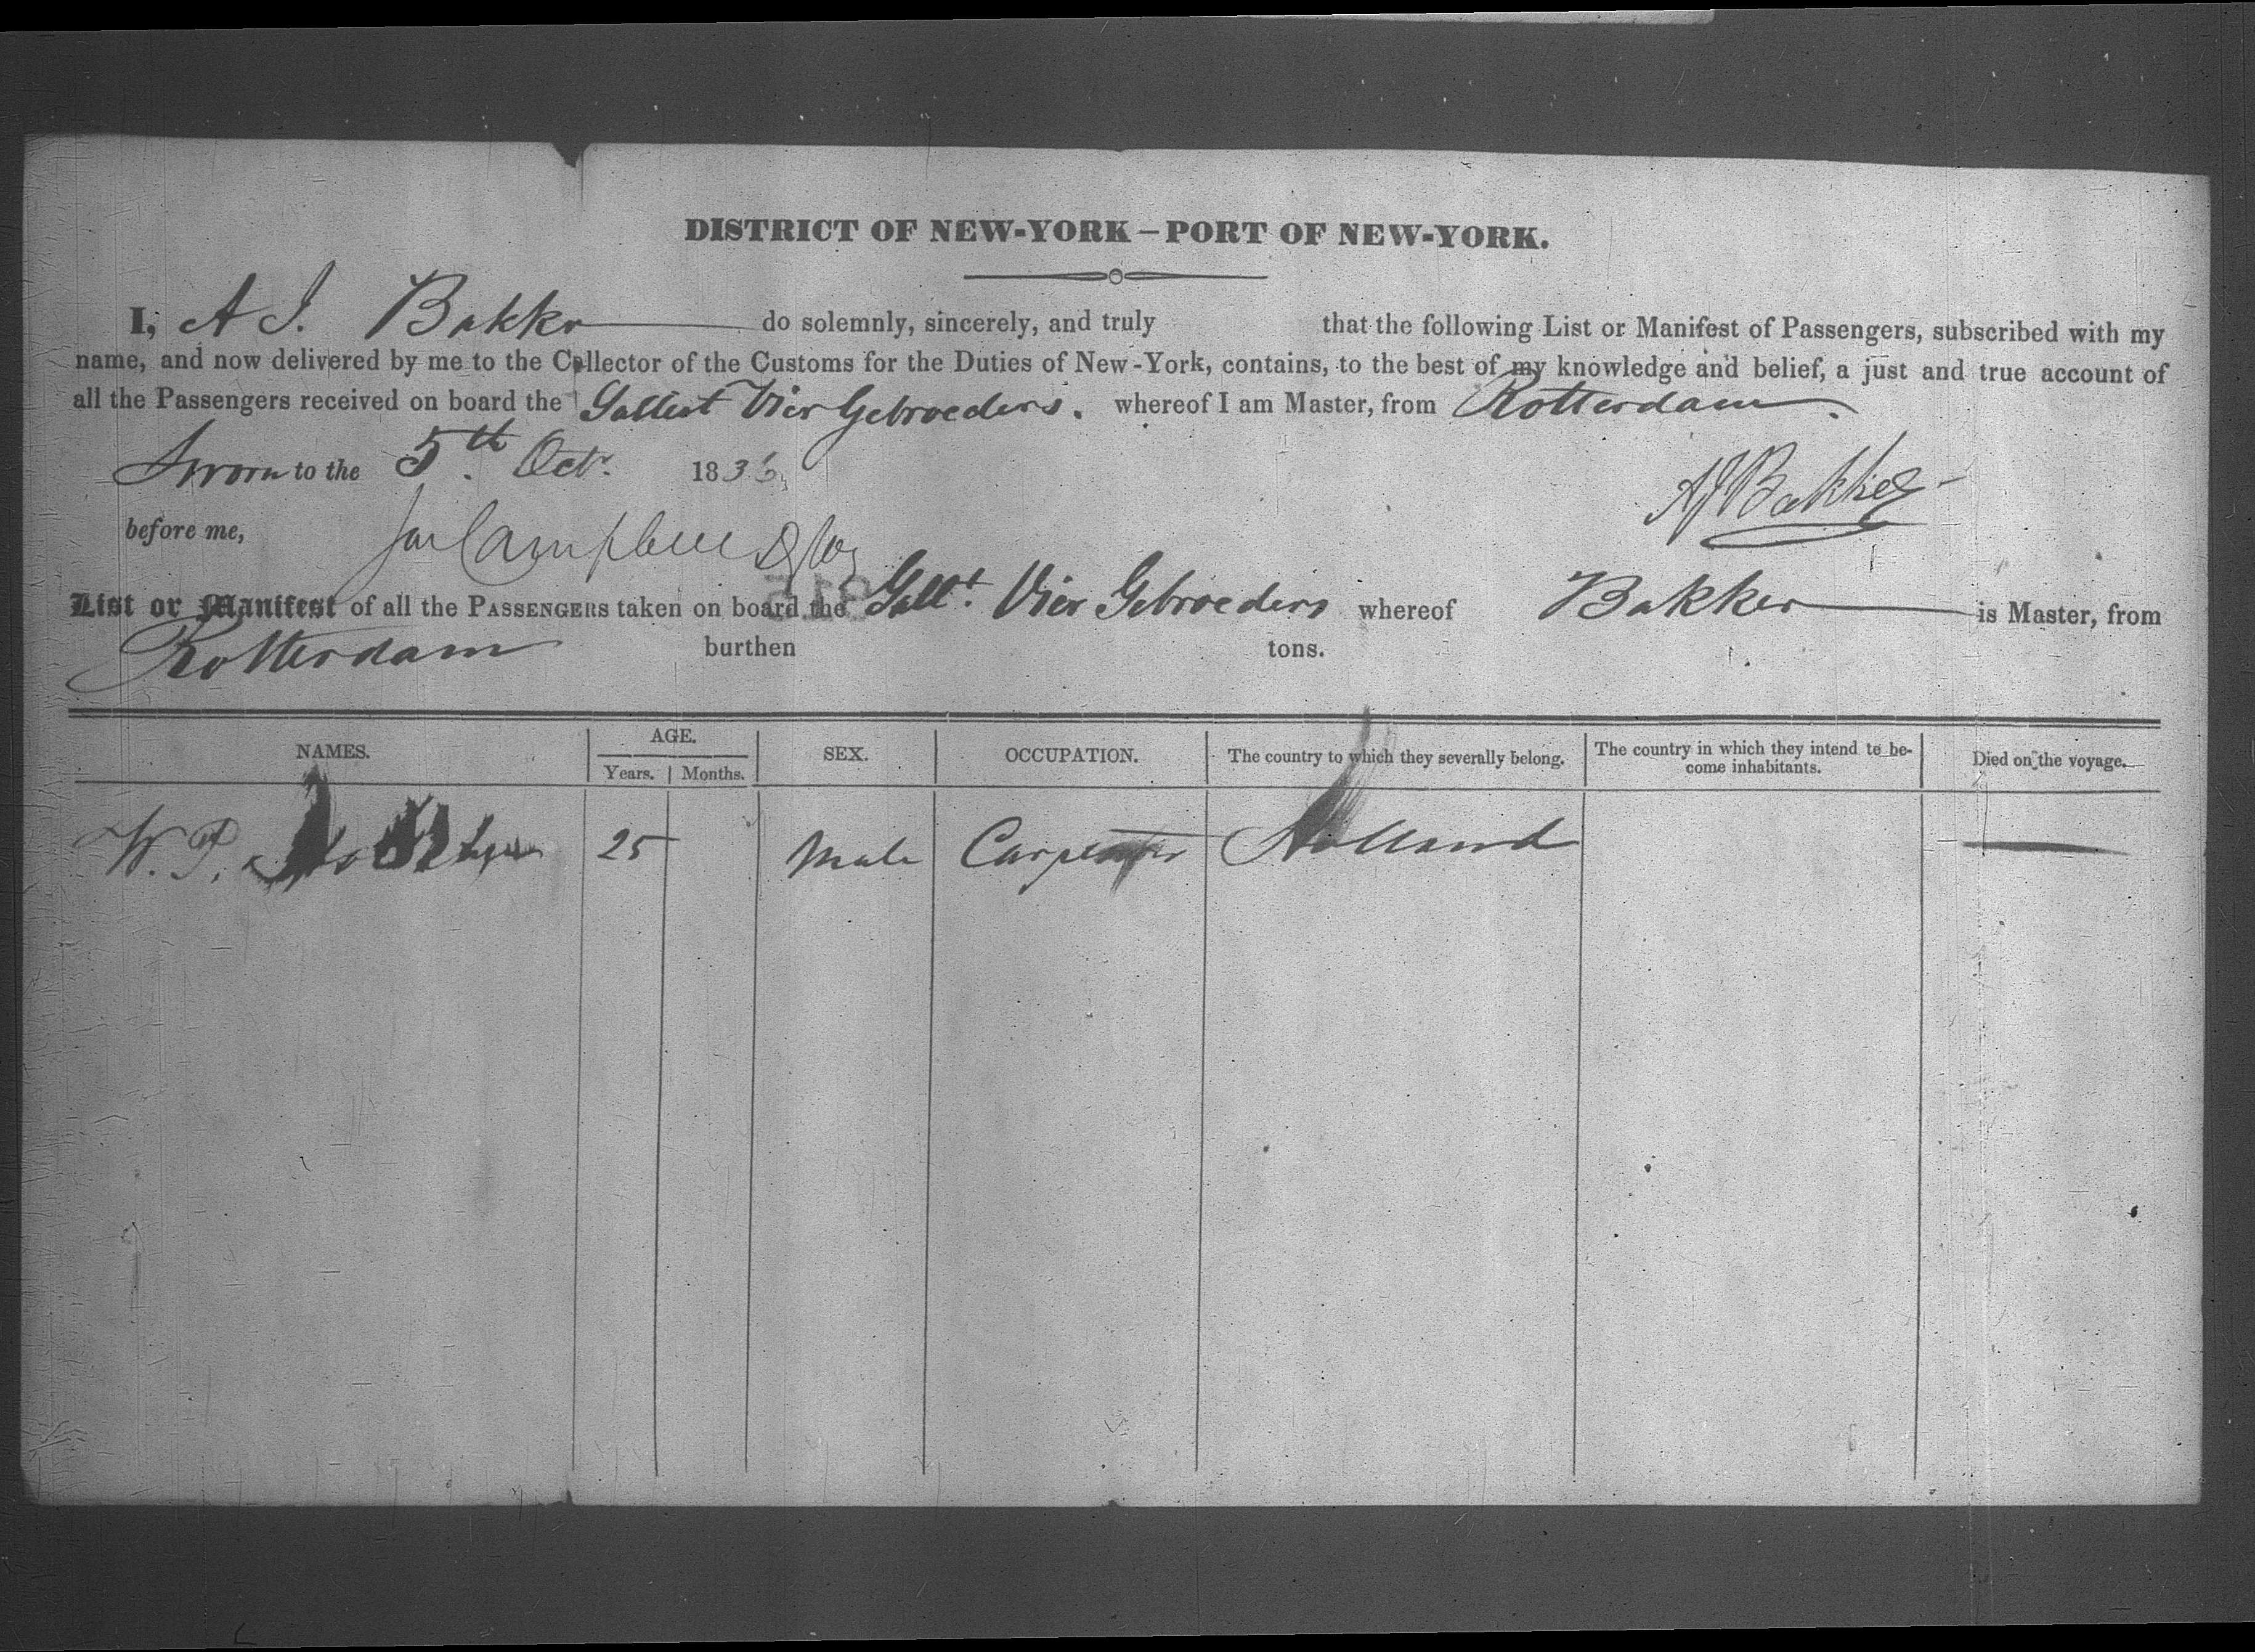 DISTRICT OF NEW-YORK – PORT OF NEW-YORK.
I, A J. Bakker do solemnly, sincerely, and truly that the following List or Manifest of Passengers, subscribed with my
name, and now delivered by me to the Collector of the Customs for the Duties of New-York, contains, to the best of my knowledge and belief, a just and true account of
all the Passengers received on board the Galliot Vier Gebroeders. whereof I am Master, from Rotterdam.
Sworn to the 5th Oct. 1836
AJ Bakker
before me, Campbell
List or Manifest of all the PASSENGERS taken on board the Gallt. Vier Gebroeders whereof Bakker is Master, from
Rotterdam burthen tons.
NAMES. AGE. SEX. OCCUPATION. The country to which they severally belong. The country in which they intend to be-
come inhabitants. Died on the voyage.
Years. Months.
W. P. 25 Male Carpenter Holland